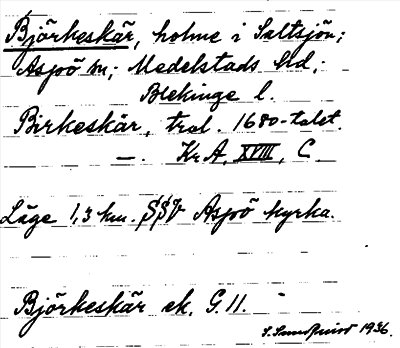 Björkeskär, holme i Saltsjön;
Aspö sn; Medelstads hd,
Blekinge l.
Birkeskär, trol. 1680-talet.
—. Kr A, XVIII, C
Läge 1,3 km. SSV Aspö kyrka.
Björkeskär ek. G. 11.
S. Sundqvist 1936.